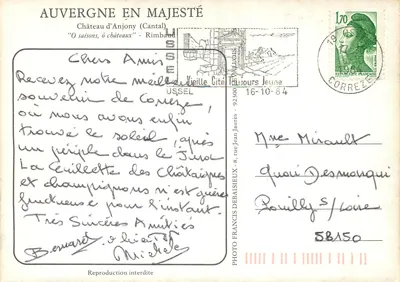 AUVERGNE EN MAJESTÉ
Château d'Anjony (Cantal)
"O saisons, ô châteaux" - Rimbaud
Chers Amis
Recevez notre meilleur
souvenir de Corrèze,
où nous avons enfin
trouvé le soleil, après
un périple dans le
La Cueillette des Châtaignes
et champignons n'est guère
fructueuse pour l'instant.
Très Sincères Amitiés
Bernard
Michèle
Reproduction interdite
PHOTO FRANCIS DEBAISIEUX - 6, rue Jean Jaurès -
USSEL
Vieille Cité Toujours Jeune
USSEL 16-10-84
1,70
CORREZE
Mme Mirault
Quai Desmarqui
Pouilly s/Loire
58150